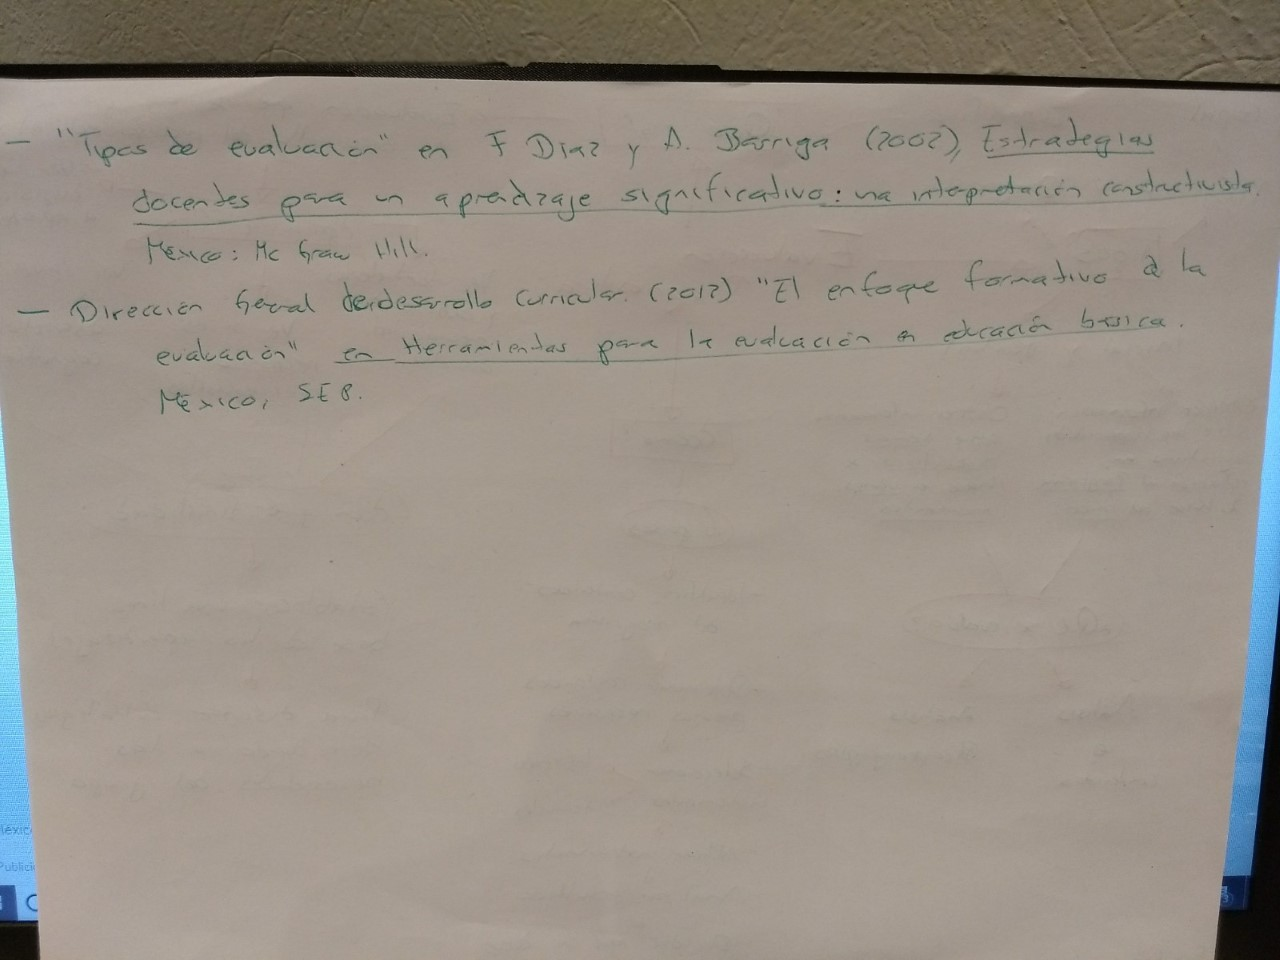 — "Tipos de evaluación" en F Diaz y A. Barriga (2002), Estrategias
docentes para un aprendizaje significativo: una interpretación constructivista.
México: Mc Graw Hill.
— Dirección General de desarrollo Curricular. (2012) "El enfoque formativo d la
evaluación" en Herramientas para la evaluación en educación básica.
México, SEB.